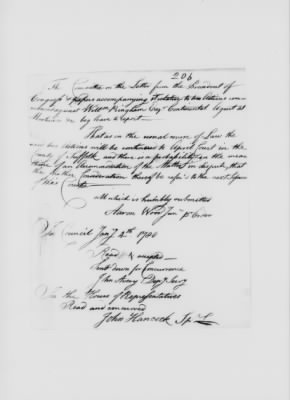 206
The Committee on the Letter from the President of
Congress & papers accompanying it relative to two Actions com
menced against Willm Bingham Esqr Continental Agent at
Martinico beg leave to report
That as in the usual course of Law the
said two Actions will be continued to Superr Court in the
County of Suffolk, and there is a probability in the mean
time of an Accommodation of the Matter in dispute, that
the further Consideration thereof be refered to the next Session
of this Court
All which is humbly submitted
Aaron Wood Junr pr Order
In Council Jany 4th 1780
Read & accepted
Sent down for Concurrence
John Avery Depy Secy
In the House of Representatives
Read and concurred
John Hancock Spkr